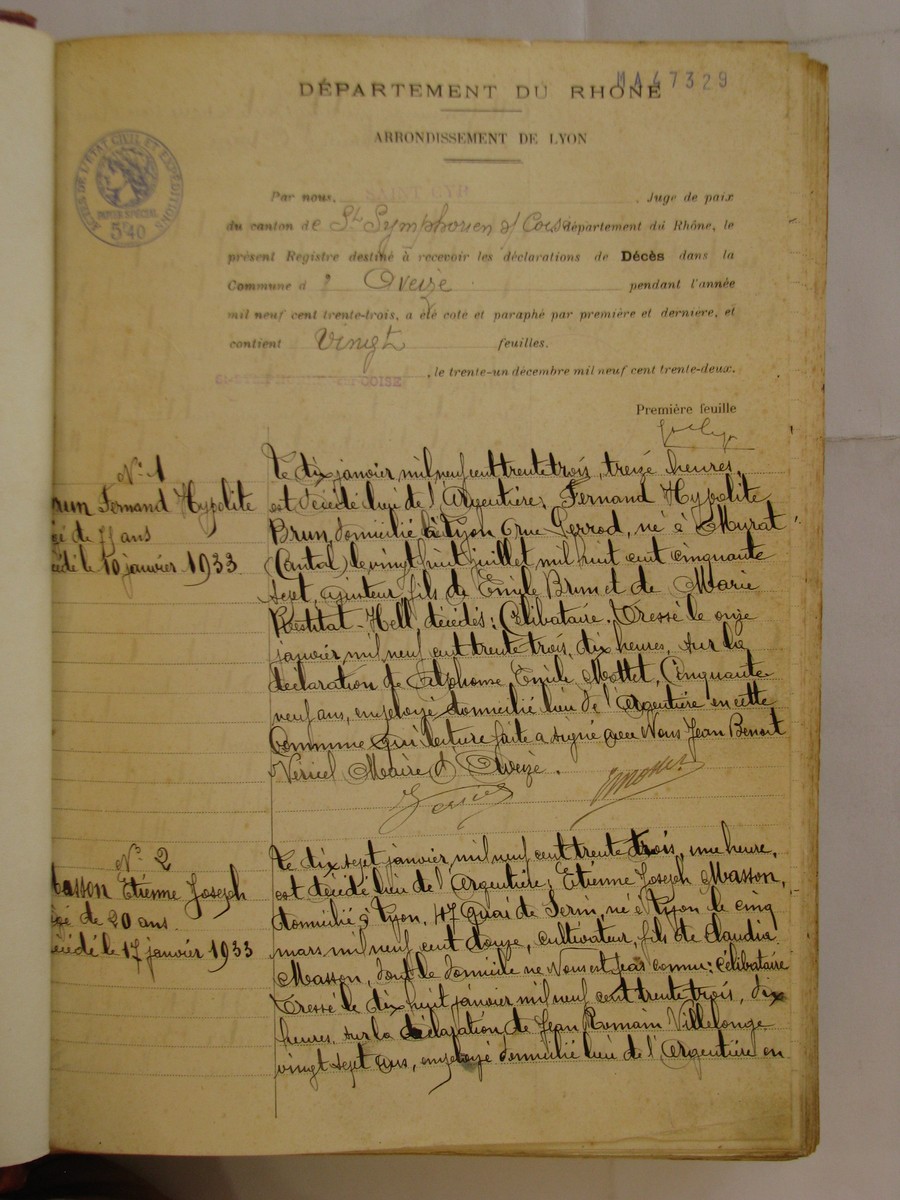 MA47329
DÉPARTEMENT DU RHÔNE
ARRONDISSEMENT DE LYON
ACTES DE L'ÉTAT CIVIL ET EXPÉDITION
PAPIER SPÉCIAL
5F40
Par nous, SAINT CYR, Juge de paix
du canton de St Symphorien s/ Coise département du Rhône, le
présent Registre destiné à recevoir les déclarations de Décès dans la
Commune d' Aveize pendant l'année
mil neuf cent trente-trois, a été coté et paraphé par première et dernière, et
contient Vingt feuilles.
St-SYMPHORIEN-s-COISE, le trente-un décembre mil neuf cent trente-deux.
Première feuille
N° 1
Brun Fernand Hypolite
âgé de 75 ans
décédé le 10 janvier 1933
Le dix janvier mil neuf cent trente trois, treize heures,
est décédé lieu de l'Argentière; Fernand Hypolite
Brun, domicilié à Lyon 6 rue Perrod, né à Murat
(Cantal) le vingt huit juillet mil huit cent cinquante
sept, ajusteur, fils de Emile Brun et de Marie
Restitat-Hell, décédés; Célibataire. Dressé le onze
janvier mil neuf cent trente trois, dix heures, sur la
déclaration de Alphonse Emile Mottet, Cinquante
neuf ans, employé domicilié lieu de l'Argentière en cette
Commune qui lecture faite a signé avec Nous Jean Benoit
Vericel Maire d'Aveize.
N° 2
Masson Etienne Joseph
âgé de 20 ans
décédé le 17 janvier 1933
Le dix sept janvier mil neuf cent trente trois, une heure,
est décédé lieu de l'Argentière; Etienne Joseph Masson,
domicilié à Lyon, 47 Quai de Serin, né à Lyon le cinq
mars mil neuf cent douze, cultivateur, fils de Claudia
Masson, dont le domicile ne Nous est pas connu; célibataire
Dressé le dix huit janvier mil neuf cent trente trois, dix
heures, sur la déclaration de Jean Romain Villelonge
vingt sept ans, employé domicilié lieu de l'Argentière en